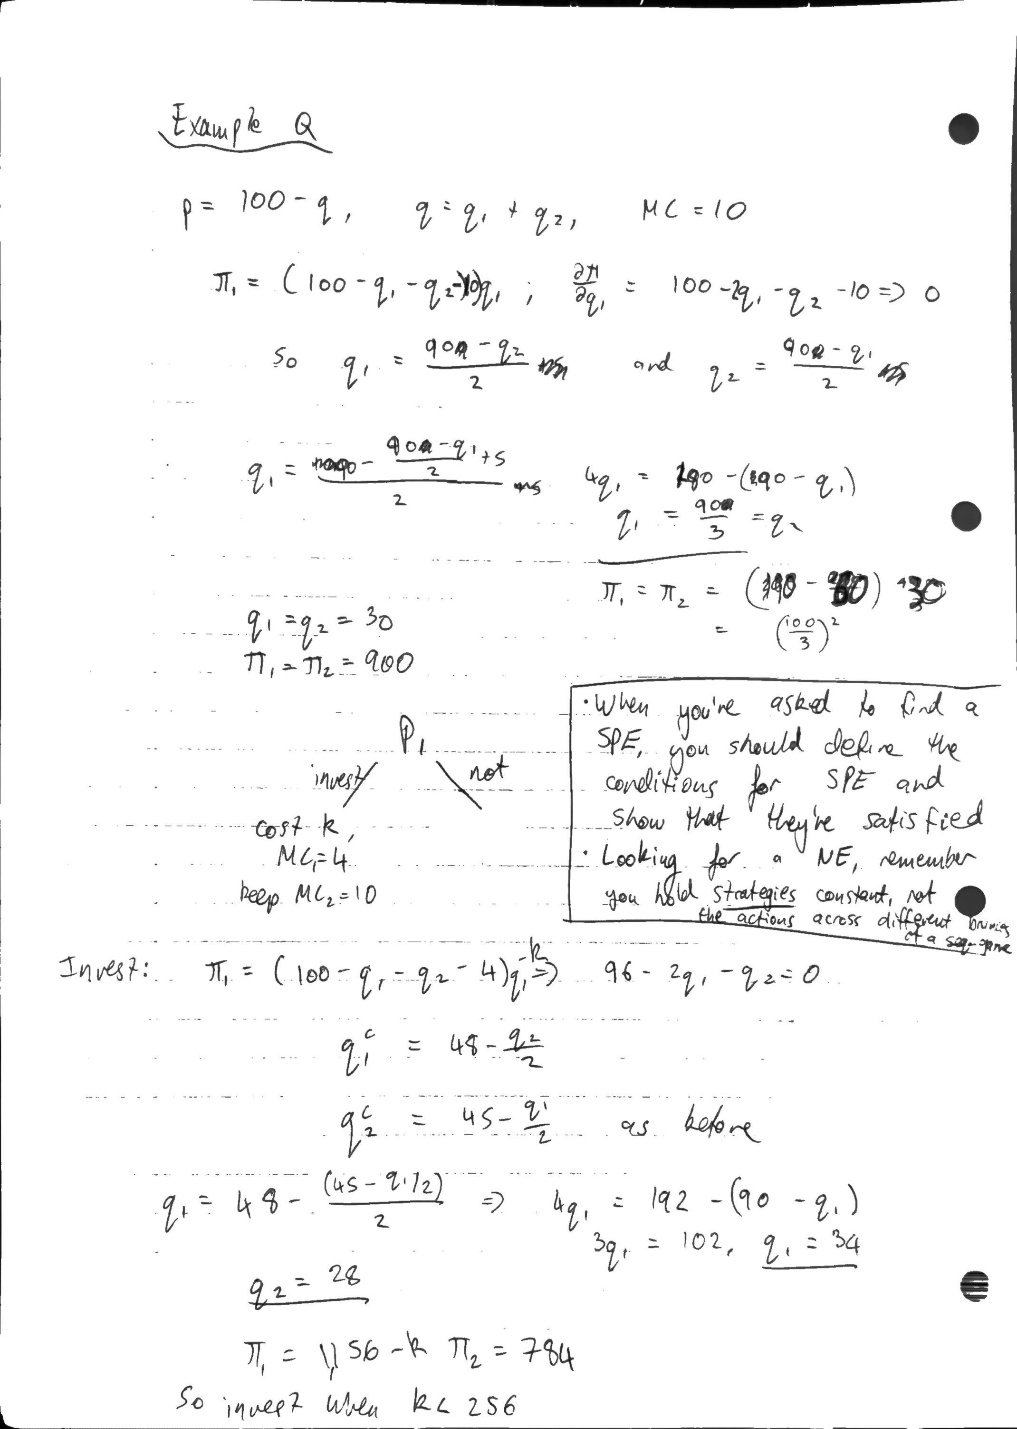 Example Q
p = 100 - q, q = q₁ + q₂, MC = 10
π₁ = (100 - q₁ - q₂ - 10)q₁ ; ∂π/∂q₁ = 100 - 2q₁ - q₂ - 10 => 0
So q₁ = (90 - q₂)/2 and q₂ = (90 - q₁)/2
4q₁ = 180 - (90 - q₁)
q₁ = 90/3 = q₂
π₁ = π₂ = (90 - 60) 30
= (100/3)²
q₁ = q₂ = 30
π₁ = π₂ = 900
P₁
invest not
cost k,
MC₁ = 4
keep MC₂ = 10
· When you're asked to find a
SPE, you should define the
conditions for SPE and
show that they're satisfied
· Looking for a NE, remember
you hold strategies constant, not
the actions across different
of a seq. game
Invest: π₁ = (100 - q₁ - q₂ - 4)q₁ - k => 96 - 2q₁ - q₂ = 0
q₁ᶜ = 48 - q₂/2
q₂ᶜ = 45 - q₁/2 as before
q₁ = 48 - (45 - q₁/2)/2 => 4q₁ = 192 - (90 - q₁)
3q₁ = 102, q₁ = 34
q₂ = 28
π₁ = 1,156 - k π₂ = 784
So invest when k < 256